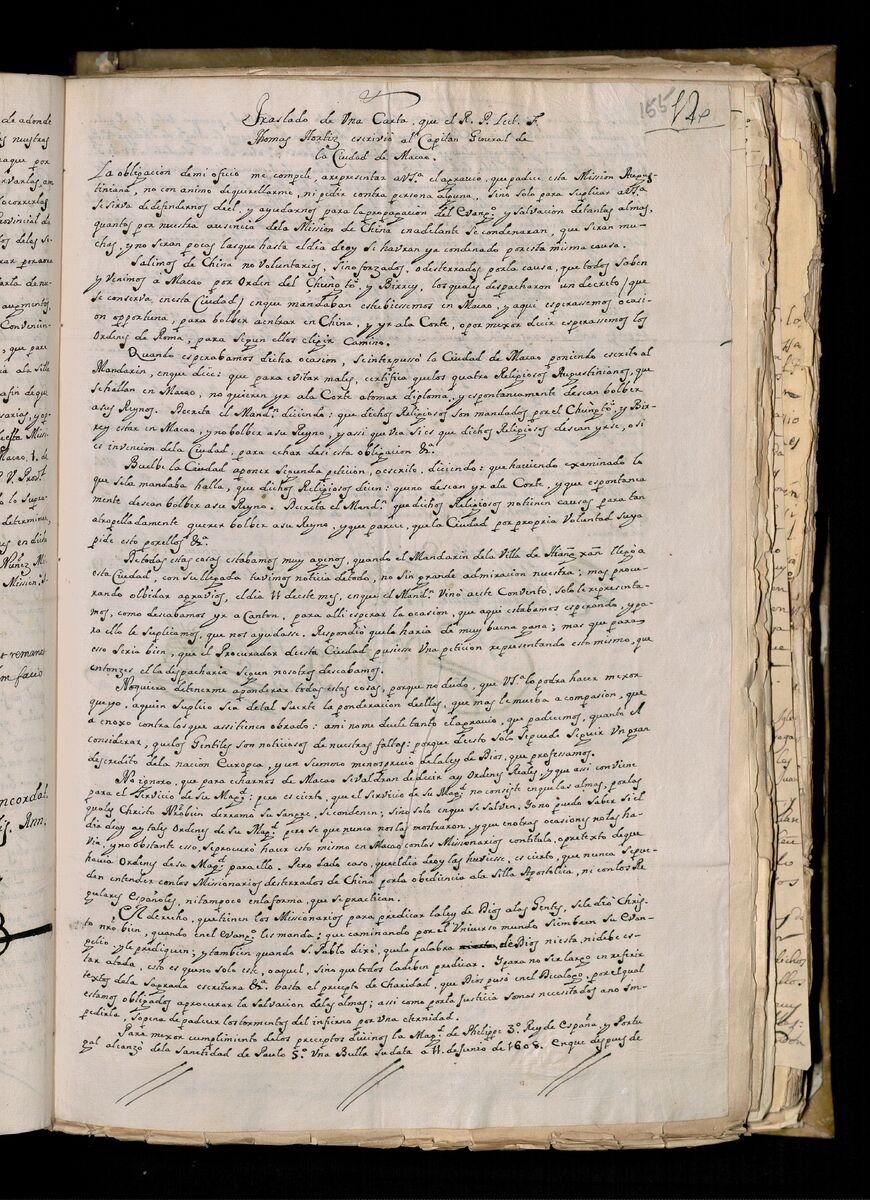 155 12
Traslado de Una Carta, que el R. P. Lect. F.
Thomas Hortiz escrivió al Capitan General de
la Ciudad de Macao.
La obligacion de mi oficio me compele, a representar a VSª el agravio, que padece esta Mission Augus-
tiniana, no con animo de querellarme, ni pedir contra persona alguna, Sino Solo para Suplicar a VSª
Se sirva de defendernos de el, y ayudarnos para la propagacion del Evangº y Salvacion de tantas almas,
quantas por nuestra ausencia de la Mission de China en adelante Se condenaran, que Seran mu-
chas, y no Seran pocas las que hasta el dia de oy Se havran ya condenado por esta misma causa.
Salimos de China no Voluntarios, Sino forzados, o desterrados por la causa, que todos Saben
y venimos a Macao por orden del Chunto, y Birrey, los quales despacharon un decreto (que
Se conserva en esta Ciudad) en que mandaban estubiessemos en Macao, y aqui esperassemos ocasi-
on opportuna, para bolber a entrar en China, y yr a la Corte, o por mexor decir esperassemos los
Ordenes de Roma, para Segun ellos elexir Camino.
Quando esperabamos dicha ocasion, Se interpusso la Ciudad de Macao poniendo escrito al
Mandarin, en que dice: que para evitar males, certifica que los quatro Religiosos Augustinianos, que
Se hallan en Macao, no quieren yr a la Corte a tomar diploma, y espontaneamente desean bolber
a sus Reynos. Decreta el Mandⁿ diciendo: que dichos Religiosos Son mandados por el Chunto, y Bir-
rey estar en Macao, y no bolber a su Reyno, y assi que vea Si es que dichos Religiosos desean yrse, o si
es invencion de la Ciudad, para echar de si esta obligacion &ª.
Buelbe la Ciudad a poner Segunda peticion, o escrito, diciendo: que haviendo examinado lo
que Se la mandaba halla, que dichos Religiosos dicen: que no desean yr a la Corte, y que espontanea
mente desean bolber a su Reyno. Decreta el Mandⁿ que dichos Religiosos no tienen causas para tan
atropelladamente querer bolber a su Reyno, y que parece, que la Ciudad por propria Voluntad Suya
pide esto por ellos &ª.
De todas estas cosas estabamos muy agenos, quando el Mandarin de la Villa de Hiañ xañ llegò a
esta Ciudad, con Su llegada tuvimos noticia de todo, no Sin grande admiracion nuestra; mas procu-
rando olbidar agravios, el dia 11 de este mes, en que el Mandⁿ Vino a este Convento, Solo le representa-
mos, como deseabamos yr a Canton, para alli esperar la ocasion, que aqui estabamos esperando, y pa-
ra ello le Suplicamos, que nos ayudasse. Respondió que lo haria de muy buena gana; mas que para
esso Seria bien, que el Procurador de esta Ciudad pusiesse Una peticion representando esto mismo, que
entonzes el la despacharia Segun nosotros deseabamos.
No quiero detenerme a ponderar todas estas cosas, porque no dudo, que VSª lo podra hacer mexor
que yo, a quien Suplico Sea de tal Suerte la ponderacion de ellas, que mas le mueba a compasion, que
a enoxo contra los que assi tienen obrado: a mi no me duele tanto el agravio, que padecemos, quanto el
considerar, que los Gentiles Son noticiosos de nuestras faltas: porque de esto Solo Se puede Seguir Un gran
descredito de la nacion Europea, y un Summo menosprecio de la ley de Dios, que professamos.
No ignoro, que para echarnos de Macao Se valdran de decir ay Ordenes Reales, y que assi conviene
para el Servicio de Su Magᵈ; pero es cierto, que el Servicio de Su Magᵈ no consiste en que las almas, por las
quales Christo Nrô bien derramó Su Sangre, Se condenen; Sino Solo en que Se Salven. Yo no puedo Saber Si el
dia de oy ay tales Ordenes de Su Magᵈ pero Se que nunca nos las mostraron, y que en otras ocasiones no las ha-
via, y no obstante esso, Se procuró hacer esto mismo en Macao con los Missionarios con titulo, o pretexto de que
havia Ordenes de Su Magᵈ para ello. Pero dado caso, que el dia de oy las huviesse, es cierto, que nunca Se pue-
den entender con los Missionarios desterrados de China por la obediencia a la Silla Apostolica, ni con los Re-
gulares Españoles, ni tampoco en la forma, que Se practican.
El derecho, que tienen los Missionarios para predicar la ley de Dios a los Gentes, Se le dió Chris-
to nrô bien, quando en el Evangº les manda: que caminando por el Universo mundo Siembren Su Evan-
gelio, y le prediquen; y tambien quando S. Pablo dixó, que la palabra de Dios ni esta, ni debe es-
tar atada, esto es que no Solo este, o aquel, Sino que todos la deben predicar. Y para no Ser largo en referir
textos de la Sagrada escritura &ª. basta el precepto de Charidad, que Dios puso en el Decalogo, por el qual
estamos obligados a procurar la Salvacion de las almas; assi como por la Justicia Somos necesitados a no Im-
pedirla, Sopena de padecer los tormentos del infierno por Una eternidad.
Para mexor cumplimiento de los preceptos divinos la Magᵈ de Phelippe 3º Rey de España, y Portu
gal alcanzò de la Santidad de Paulo 5º Una Bulla Su data a 11 de Junio de 1608. en que despues de